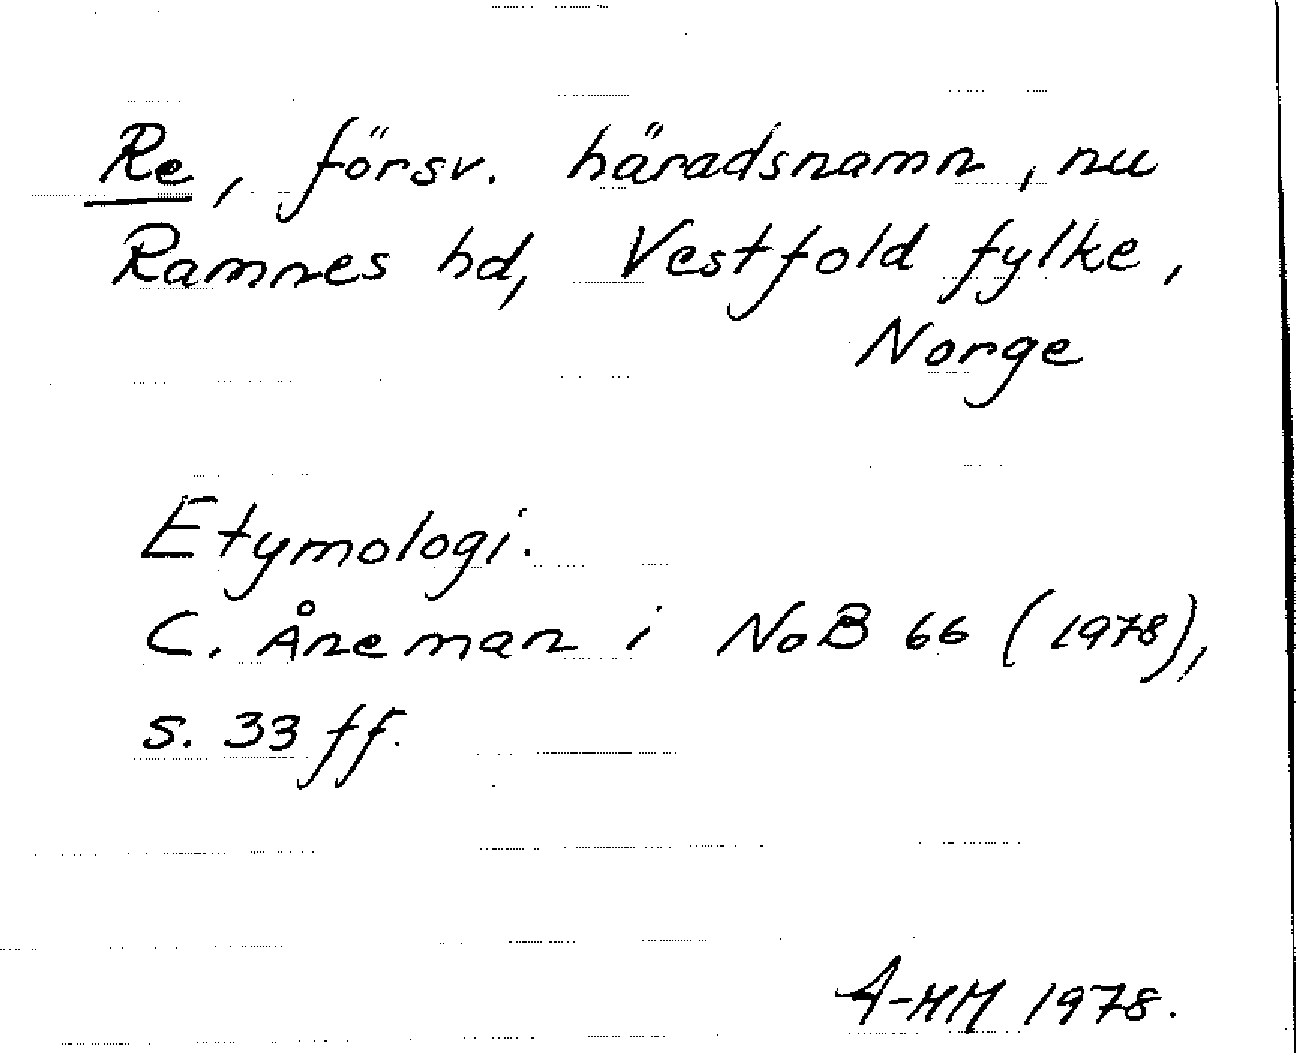 Re, försv. häradsnamn, nu
Ramnes hd, Vestfold fylke,
Norge
Etymologi.
C. Åneman i NoB 66 (1978),
s. 33 ff.
A-HM 1978.